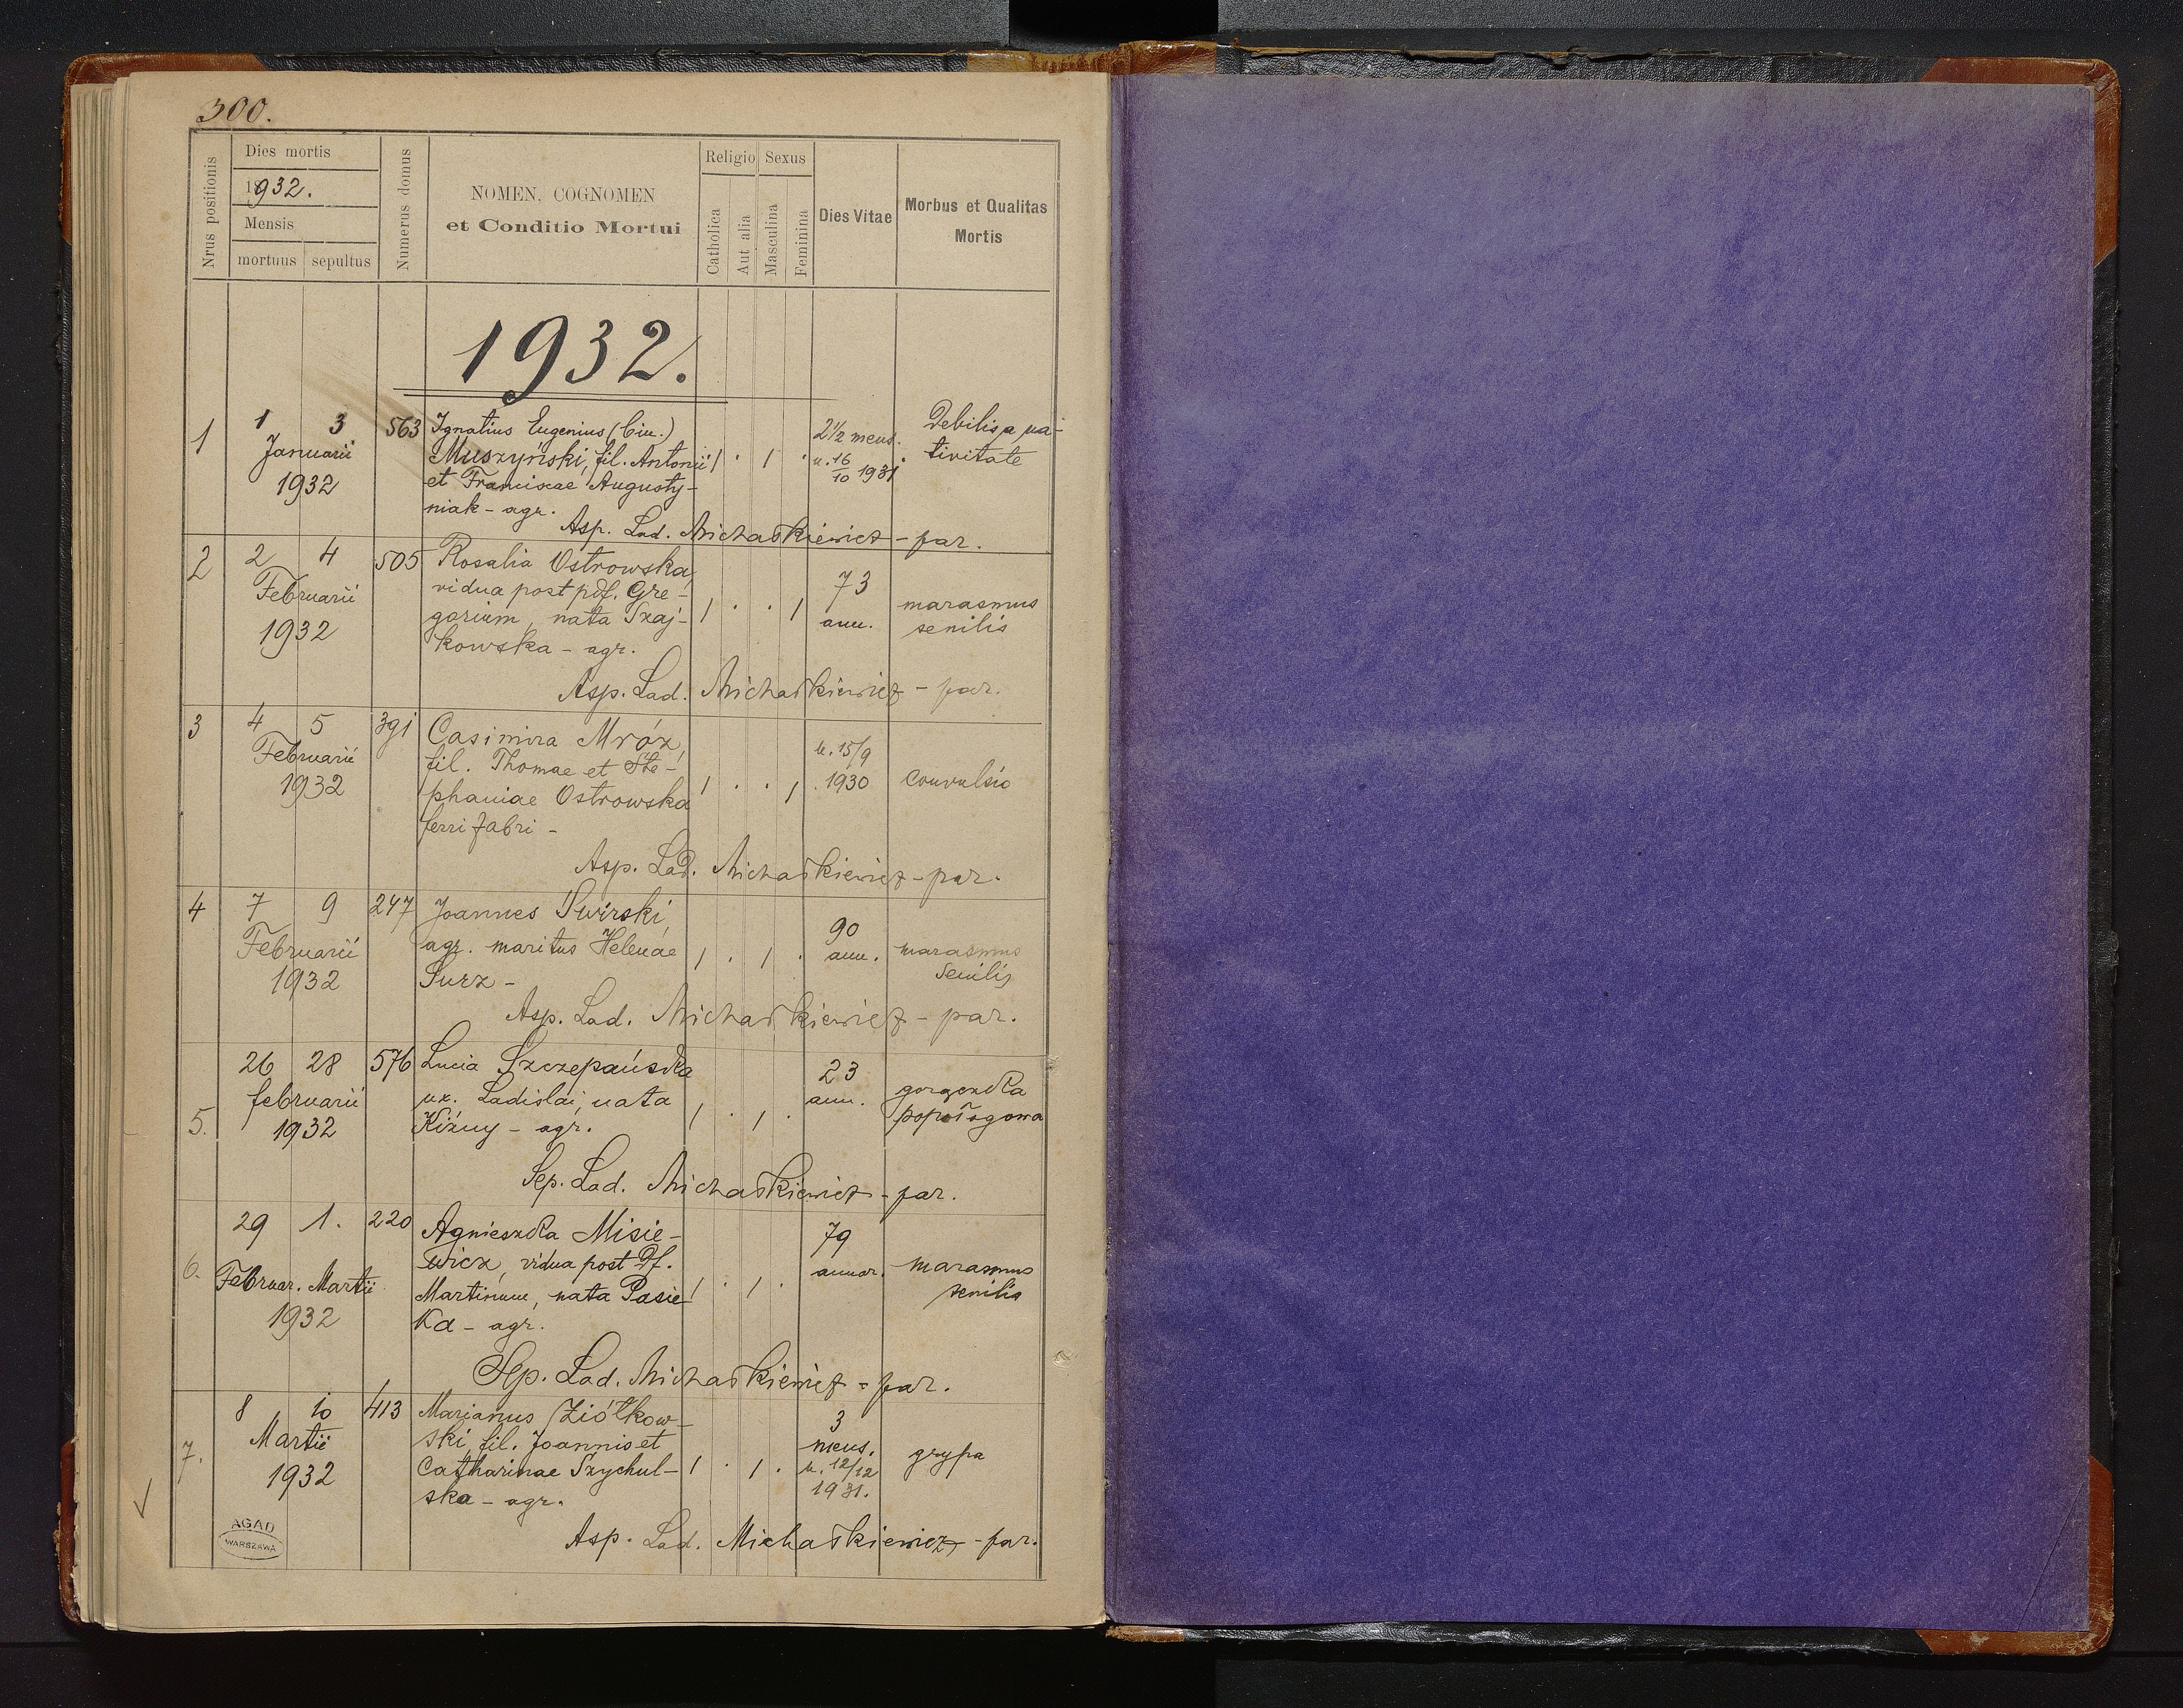 300.
Nrus positionis
Dies mortis
1932.
Mensis
mortuus sepultus
Numerus domus
NOMEN, COGNOMEN
et Conditio Mortui
Religio Sexus
Catholica
Aut alia
Masculina
Feminina
Dies Vitae
Morbus et Qualitas
Mortis
1932.
1 1 3 563 Ignatius Eugenius (bin.) 2½ mens. Debilis a na-
Januarii Muszyński, fil. Antonii 1 . 1 . n. 16/10 1931 tivitate
1932 et Franciscae Augusty-
niak - agr.
Asp. Lad. Michaśkiewicz - par.
2 2 4 505 Rosalia Ostrowska,
Februarii vidua post pdf. Gre- 73
1932 gorium, nata Szaj- 1 . . 1 ann. marasmus
kowska - agr. senilis
Asp. Lad. Michaśkiewicz - par.
3 4 5 391 Casimira Mróz,
Februarii fil. Thomae et Ste- n. 15/9
1932 phaniae Ostrowska 1 . . 1 1930 convulsio
ferri fabri -
Asp. Lad. Michaśkiewicz - par.
4 7 9 247 Joannes Swirski,
Februarii agr. maritus Helenae 1 . 1 . 90 ann. marasmus
1932 Surz - senilis
Asp. Lad. Michaśkiewicz - par.
26 28 576 Lucia Szczepańska 23
februarii ux. Ladislai, nata 1 . 1 . ann. gorączka
5. 1932 Kiźny - agr. popołogowa
Sep. Lad. Michaśkiewicz - par.
29 1. 220 Agnieszka Misie- 79
6. Februar. Martii wicz, vidua post df. annor. marasmus
1932 Martinum, nata Pasie 1 . 1 . senilis
ka - agr.
Sep. Lad. Michaśkiewicz - par.
8 10 413 Marianus Ziółkow- 3
Martii ski, fil. Joannis et mens.
7. 1932 Catharinae Szychul- 1 . 1 . n. 12/12 grypa
ska - agr. 1931.
Asp. Lad. Michaśkiewicz - par.
AGAD
WARSZAWA